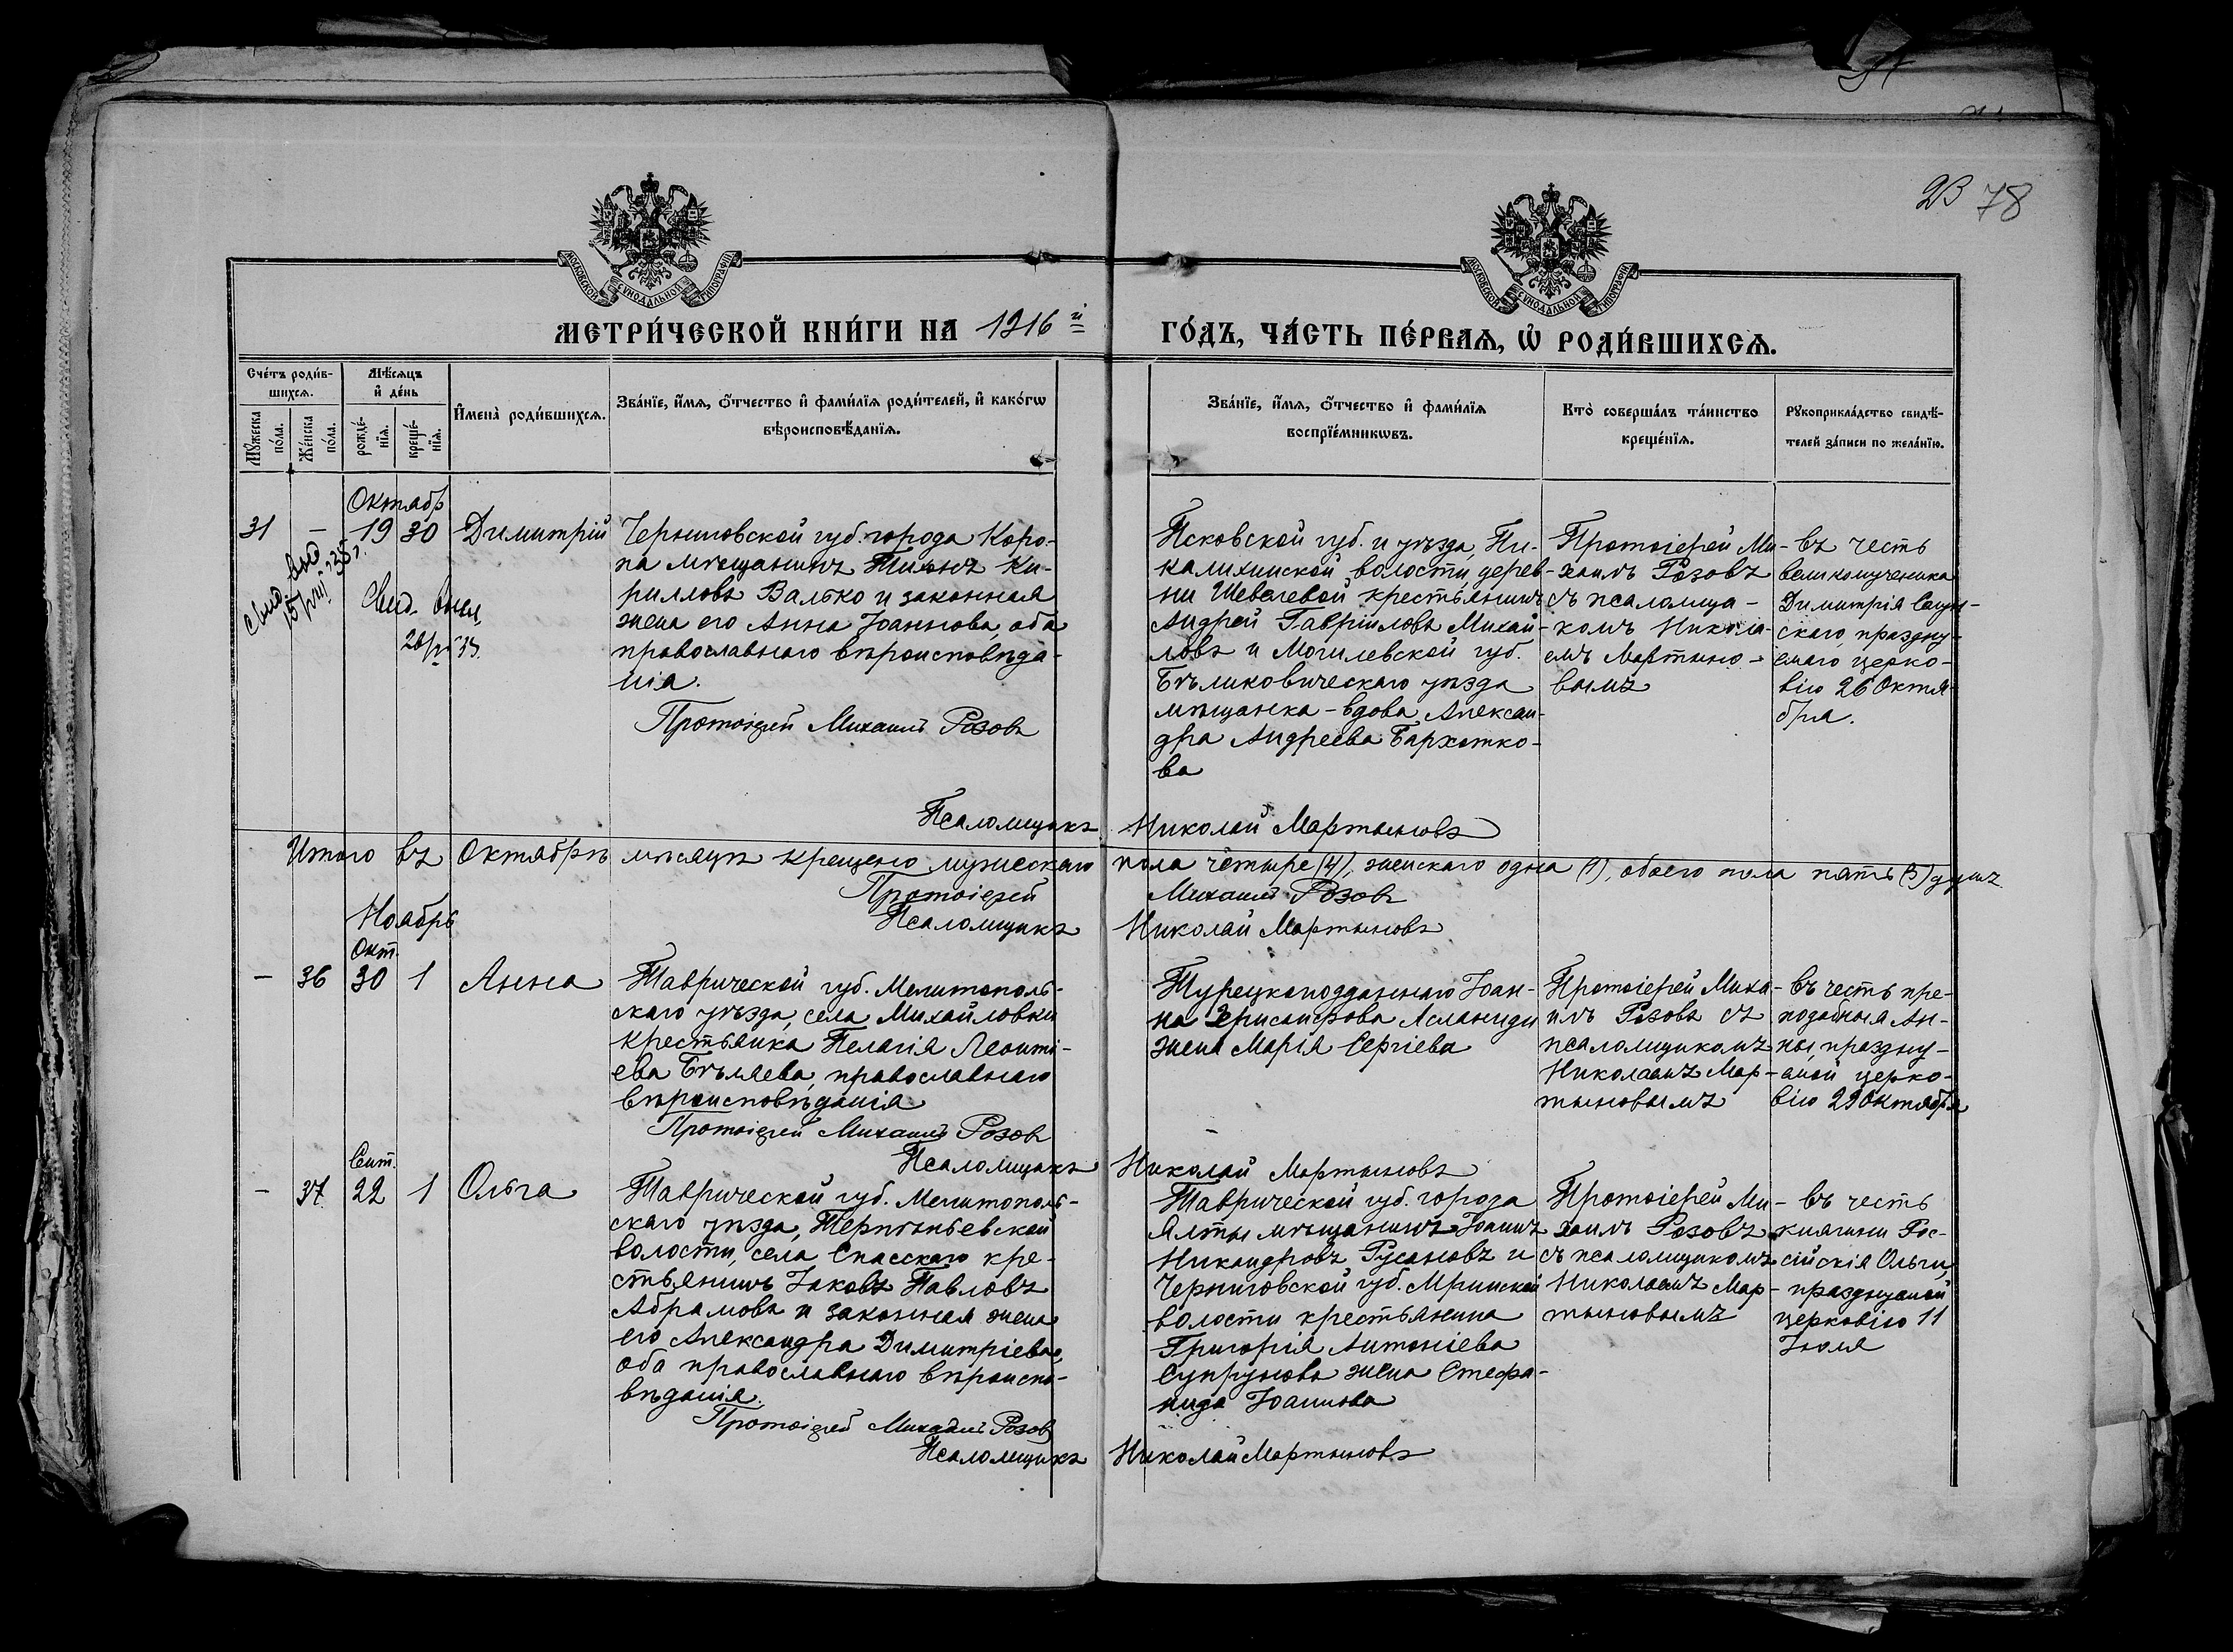 78
МОСКОВСКОЙ СѴНОДАЛЬНОЙ ТИПОГРАФІИ
МОСКОВСКОЙ СѴНОДАЛЬНОЙ ТИПОГРАФІИ
МЕТРИ́ЧЕСКОЙ КНИ́ГИ НА 1916й
ГО́ДЪ, ЧА́СТЬ ПЕ́РВАѦ, Ѡ҆ РОДИ́ВШИХСѦ.
Сче́тъ роди́в-
шихсѧ.
Мꙋ́жеска
по́ла.
Же́нска
по́ла.
Мѣ́сѧцъ
и҆ де́нь
рожде́-
нїѧ.
креще́-
нїѧ.
И҆мена̀ роди́вшихсѧ.
Зва́нїе, и҆́мѧ, ѻ҆́тчество и҆ фами́лїѧ роди́телей, и҆ како́гѡ
вѣроисповѣ́данїѧ.
Зва́нїе, и҆́мѧ, ѻ҆́тчество и҆ фами́лїѧ
воспрїе́мникѡвъ.
Кто̀ соверша́лъ та́инство
креще́нїѧ.
Рꙋкоприкла́дство свидѣ́-
телей за́писи по жела́нїю.
Октябр
31 – 19 30 Димитрій
Свид. выд.
Свид. выд.
Черниговской губ. города Коро-
па мѣщанинъ Тихонъ Ки-
рилловъ Валько и законная
жена его Анна Іоаннова, оба
православнаго вѣроисповѣда-
нія.
Протоіерей Михаилъ Розовъ
Псковской губ. и уѣзда, Пи-
калихинской волости, дерев-
ни Шевелевой крестьянинъ
Андрей Гавріиловъ Михай-
ловъ и Могилевской губ.
уѣзда
мѣщанка-вдова Алексан-
дра Андреева Бархатко-
ва
Протоіерей Ми-
хаилъ Розовъ
съ псаломщи-
комъ Никола-
емъ Мартыно-
вымъ
въ честь
великомученика
Димитрія Солун-
скаго, праздну-
емаго церко-
вію 26 Октя-
бря.
Псаломщикъ Николай Мартыновъ
Итого въ Октябрѣ мѣсяцѣ крещено мужескаго пола четыре (4), женскаго одна (1), обоего пола пять (5) душъ
Протоіерей Михаилъ Розовъ
Псаломщикъ Николай Мартыновъ
Ноябрь
Окт.
– 36 30 1 Анна
Таврической губ. Мелитополь-
скаго уѣзда, села Михайловки
крестьянка Пелагія Леонті-
ева Бѣляева, православнаго
вѣроисповѣданія
Протоіерей Михаилъ Розовъ
Турецкоподданнаго Іоан-
на Асланиди
жена Марія Сергіева
Протоіерей Миха-
илъ Розовъ съ
псаломщикомъ
Николаемъ Мар-
тыновымъ
въ честь пре-
подобныя Ан-
ны, праздну-
емой церко-
вію 29 Октября
Псаломщикъ Николай Мартыновъ
Сент.
– 37 22 1 Ольга
Таврической губ. Мелитополь-
скаго уѣзда, Терпѣньевской
волости, села Спасскаго кре-
стьянинъ Іаковъ Павловъ
Абрамовъ и законная жена
его Александра Димитріева,
оба православнаго вѣроиспо-
вѣданія.
Протоіерей Михаилъ Розовъ
Таврической губ. города
Ялты мѣщанинъ Іоаннъ
Никандровъ Русановъ и
Черниговской губ. Мринской
волости крестьянина
Григорія Антоніева
Супрунова жена Стефа-
нида Іоаннова
Протоіерей Ми-
хаилъ Розовъ
съ псаломщикомъ
Николаемъ Мар-
тыновымъ
въ честь
княгини Рос-
сійскія Ольги,
празднуемой
церковію 11
Іюля
Псаломщикъ Николай Мартыновъ